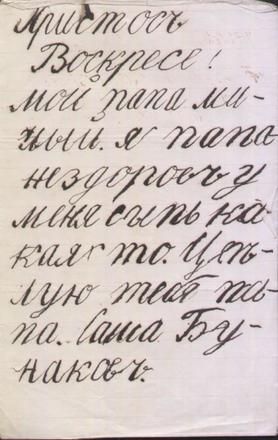 Христосъ
Воскресе!
мой папа ми-
лый. я папа
нездоровъ у
меня сыпь ка
кая то. Цѣ-
лую тебя па-
па. Саша Бу-
наковъ.